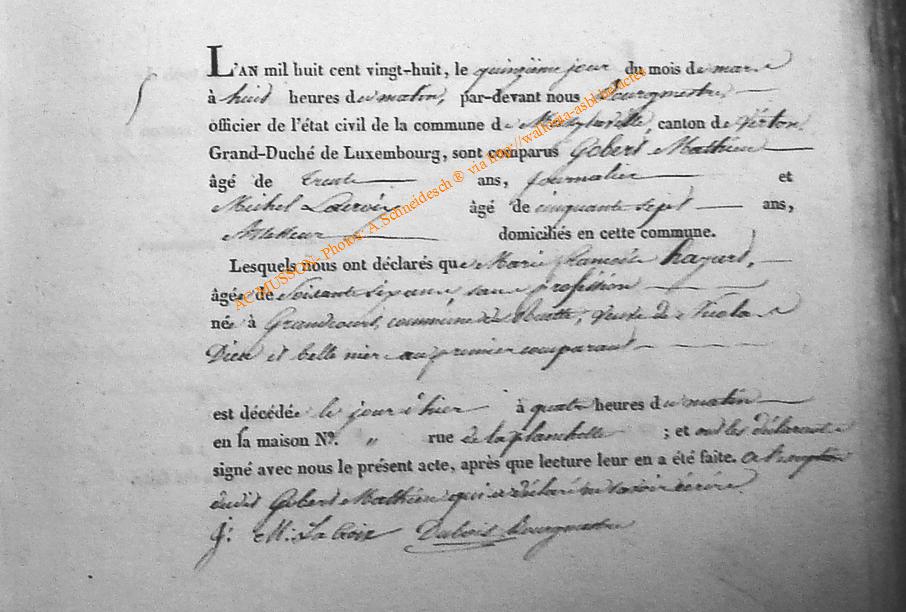 L'AN mil huit cent vingt-huit, le quinzième jour du mois de mars
à huit heures du matin, par-devant nous Bourgmestre
officier de l'état civil de la commune de Mussy la ville, canton de Virton
Grand-Duché de Luxembourg, sont comparus Gobert Mathieu
âgé de trente ans, journalier et
Michel Lacroix âgé de cinquante sept ans,
domiciliés en cette commune.
Lesquels nous ont déclarés que Marie Hayart,
âgée de Soixante six ans, sans profession
née à Grandcourt, commune de Ruette, veuve de Nicolas
Dieu et belle mère au premier comparant
est décédée le jour d'hier à quatre heures du matin
en sa maison N°. " rue de la planchette ; et ont les déclarants
signé avec nous le présent acte, après que lecture leur en a été faite. a l'exception
dudit Gobert Mathieu qui a déclaré ne savoir écrire.
J: M: La Croix Dubois Bourgmestre
AC MUSSON - Photos A.Schneidesch ® via http://wallonia-asbl.be/actes